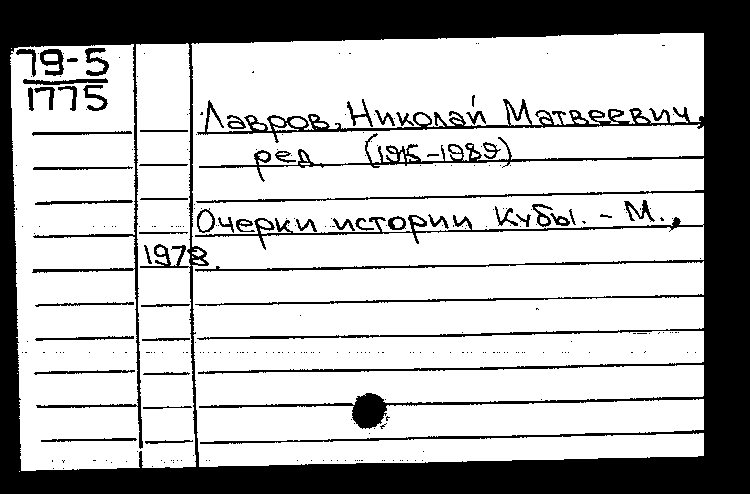 79-5
1775
Лавров, Николай Матвеевич,
ред. (1915-1989)
Очерки истории Кубы. - М.,
1978.